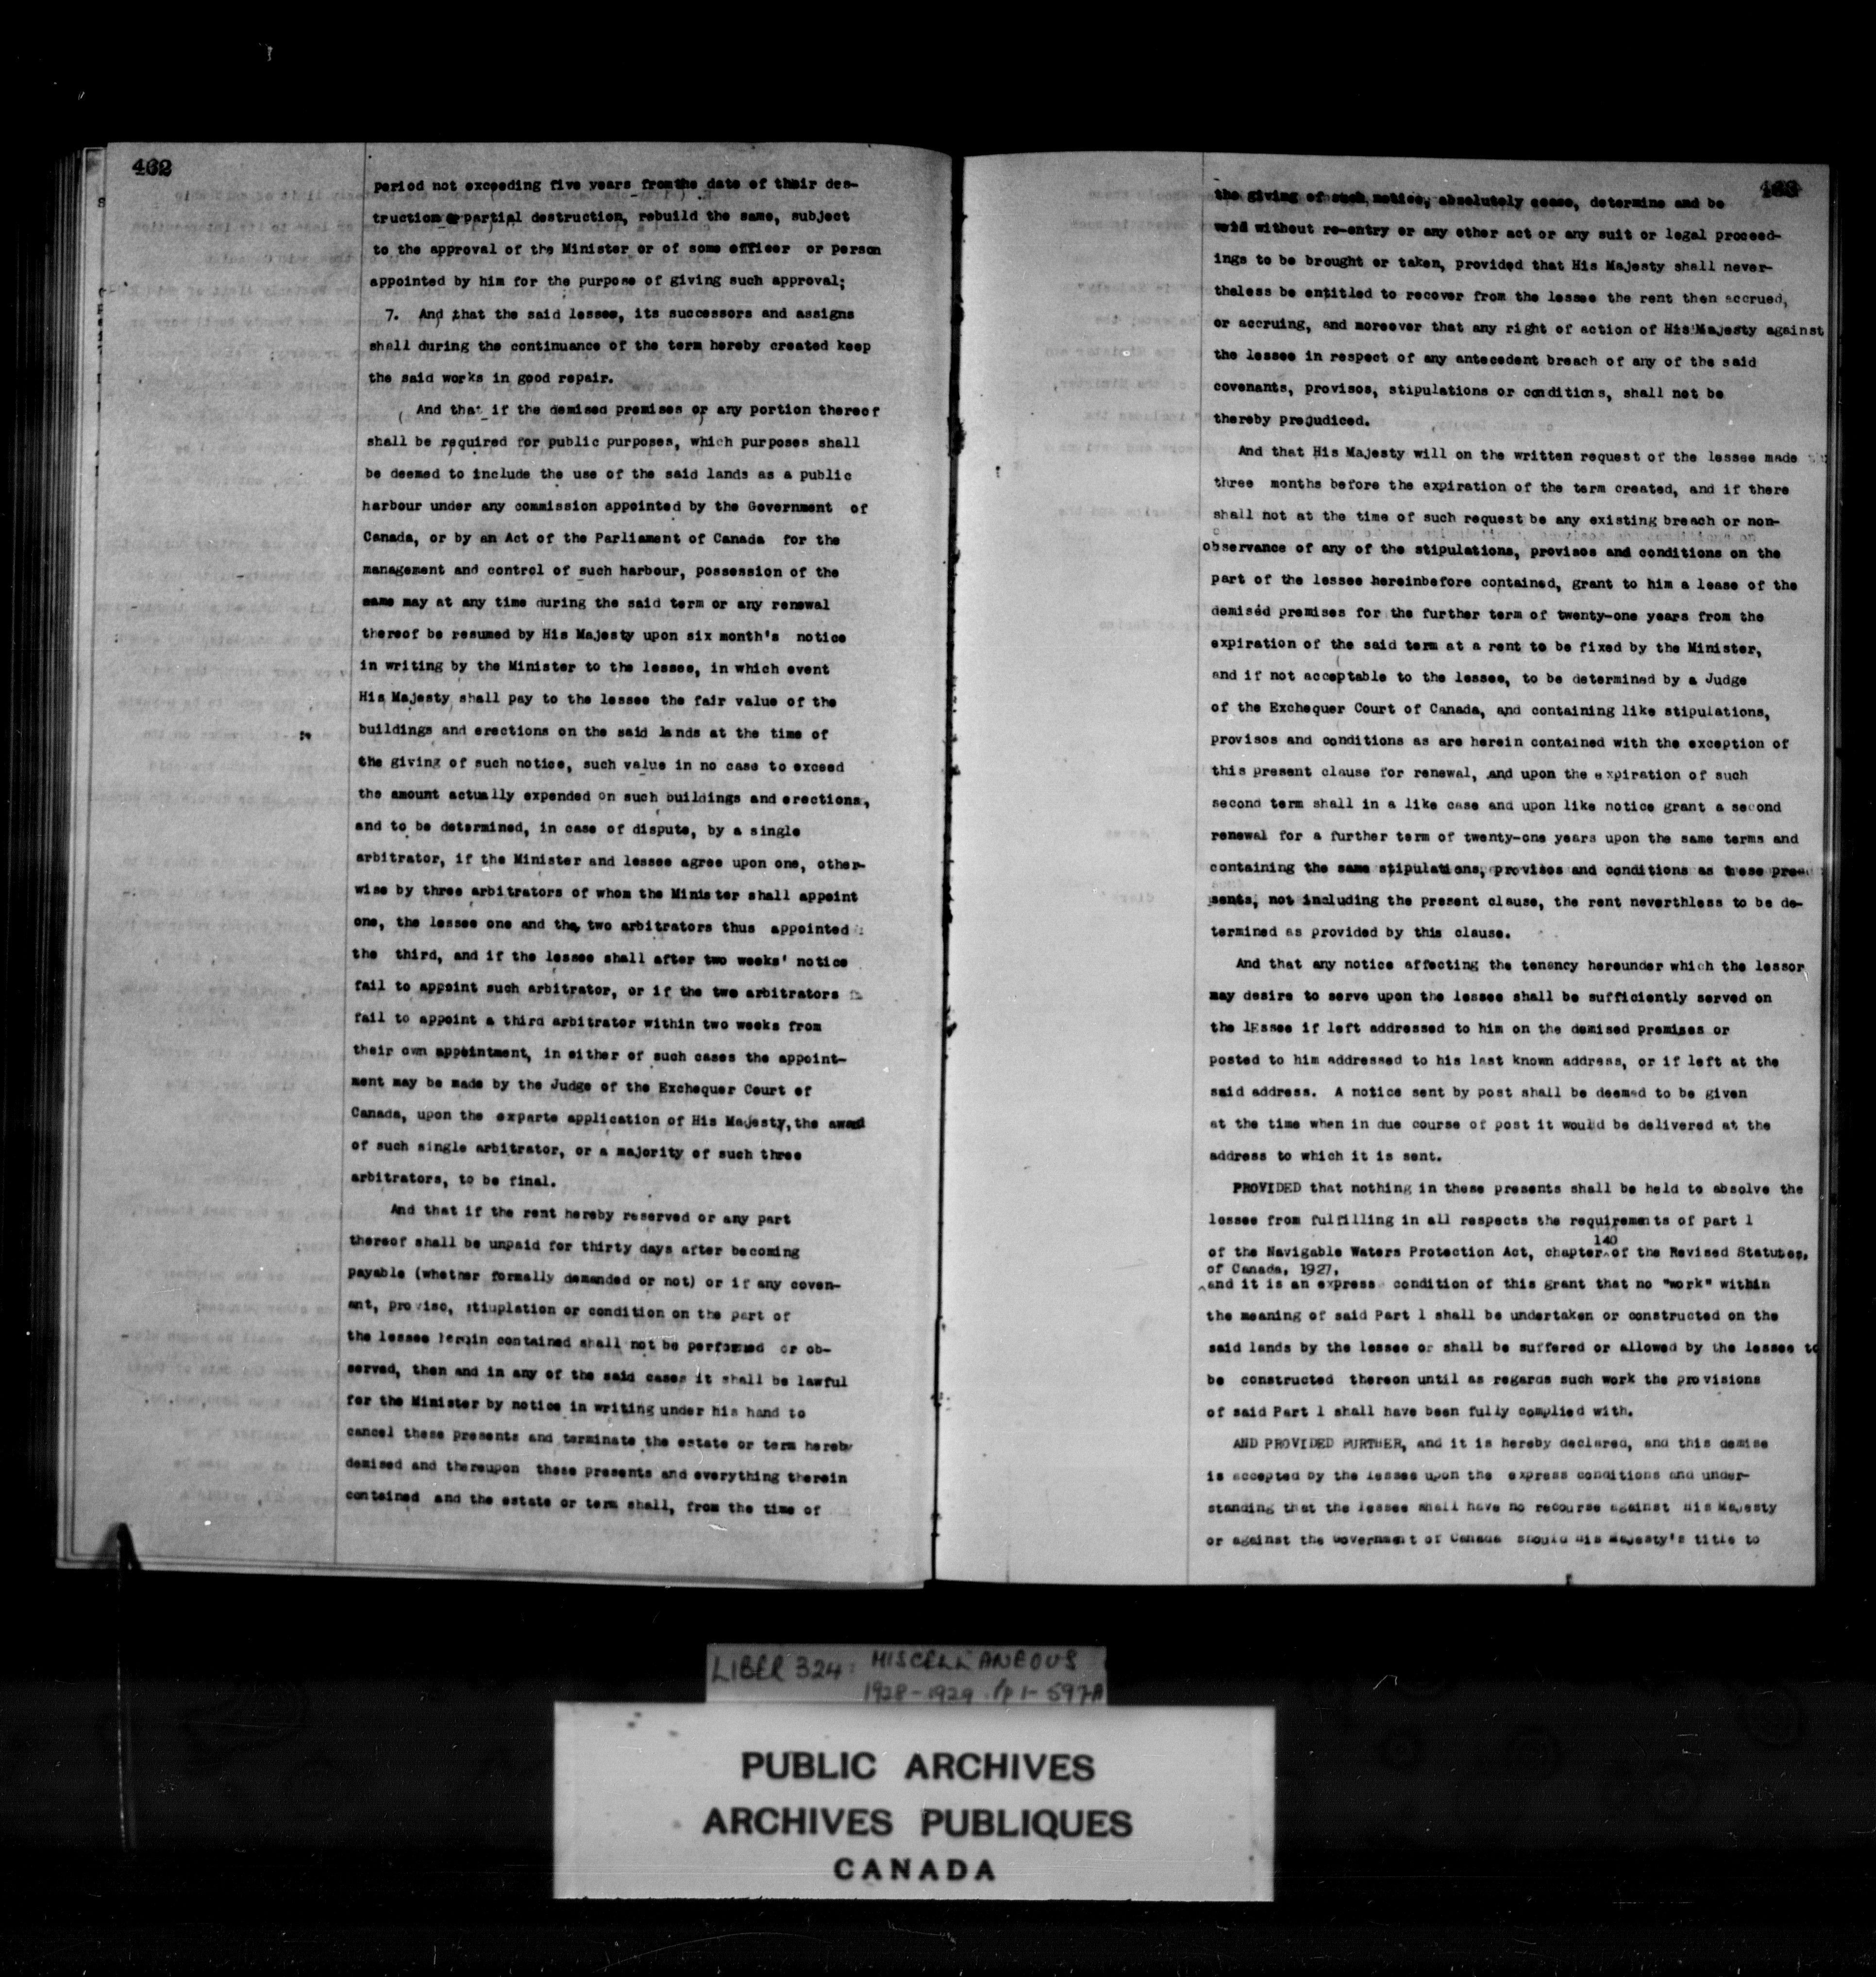 462
period not exceeding five years fromthe date of their des-
truction or partial destruction, rebuild the same, subject
to the approval of the Minister or of some officer or person
appointed by him for the purpose of giving such approval;
7. And that the said lessee, its successors and assigns
shall during the continuance of the term hereby created keep
the said works in good repair.
And that if the demised premises or any portion thereof
shall be required for public purposes, which purposes shall
be deemed to include the use of the said lands as a public
harbour under any commission appointed by the Government of
Canada, or by an Act of the Parliament of Canada for the
management and control of such harbour, possession of the
same may at any time during the said term or any renewal
thereof be resumed by His Majesty upon six month's notice
in writing by the Minister to the lessee, in which event
His Majesty shall pay to the lessee the fair value of the
buildings and erections on the said lands at the time of
the giving of such notice, such value in no case to exceed
the amount actually expended on such buildings and erections,
and to be determined, in case of dispute, by a single
arbitrator, if the Minister and lessee agree upon one, other-
wise by three arbitrators of whom the Minister shall appoint
one, the lessee one and the two arbitrators thus appointed
the third, and if the lessee shall after two weeks' notice
fail to appoint such arbitrator, or if the two arbitrators
fail to appoint a third arbitrator within two weeks from
their own appointment, in either of such cases the appoint-
ment may be made by the Judge of the Exchequer Court of
Canada, upon the exparte application of His Majesty, the award
of such single arbitrator, or a majority of such three
arbitrators, to be final.
And that if the rent hereby reserved or any part
thereof shall be unpaid for thirty days after becoming
payable (whether formally demanded or not) or if any coven-
ant, proviso, stiuplation or condition on the part of
the lessee herein contained shall not be performed or ob-
served, then and in any of the said cases it shall be lawful
for the Minister by notice in writing under his hand to
cancel these presents and terminate the estate or term hereby
demised and thereupon these presents and everything therein
contained and the estate or term shall, from the time of
463
the giving of such notice, absolutely cease, determine and be
void without re-entry or any other act or any suit or legal proceed-
ings to be brought or taken, provided that His Majesty shall never-
theless be entitled to recover from the lessee the rent then accrued,
or accruing, and moreover that any right of action of His Majesty against
the lessee in respect of any antecedent breach of any of the said
covenants, provisos, stipulations or conditions, shall not be
thereby prejudiced.
And that His Majesty will on the written request of the lessee made
three months before the expiration of the term created, and if there
shall not at the time of such request be any existing breach or non-
observance of any of the stipulations, provisos and conditions on the
part of the lessee hereinbefore contained, grant to him a lease of the
demised premises for the further term of twenty-one years from the
expiration of the said term at a rent to be fixed by the Minister,
and if not acceptable to the lessee, to be determined by a Judge
of the Exchequer Court of Canada, and containing like stipulations,
provisos and conditions as are herein contained with the exception of
this present clause for renewal, and upon the expiration of such
second term shall in a like case and upon like notice grant a second
renewal for a further term of twenty-one years upon the same terms and
containing the same stipulations, provisos and conditions as these pre-
sents, not including the present clause, the rent neverthless to be de-
termined as provided by this clause.
And that any notice affecting the tenancy hereunder which the lessor
may desire to serve upon the lessee shall be sufficiently served on
the lEssee if left addressed to him on the demised premises or
posted to him addressed to his last known address, or if left at the
said address. A notice sent by post shall be deemed to be given
at the time when in due course of post it would be delivered at the
address to which it is sent.
PROVIDED that nothing in these presents shall be held to absolve the
lessee from fulfilling in all respects the requirements of part 1
140
of the Navigable Waters Protection Act, chapter^of the Revised Statutes,
of Canada, 1927,
^and it is an express condition of this grant that no "work" within
the meaning of said Part 1 shall be undertaken or constructed on the
said lands by the lessee or shall be suffered or allowed by the lessee to
be constructed thereon until as regards such work the provisions
of said Part 1 shall have been fully complied with.
AND PROVIDED FURTHER, and it is hereby declared, and this demise
is accepted by the lessee upon the express conditions and under-
standing that the lessee shall have no recourse against His Majesty
or against the Government of Canada should His Majesty's title to
LIBER 324: MISCELLANEOUS
1928-1929 pp 1-597A
PUBLIC ARCHIVES
ARCHIVES PUBLIQUES
CANADA